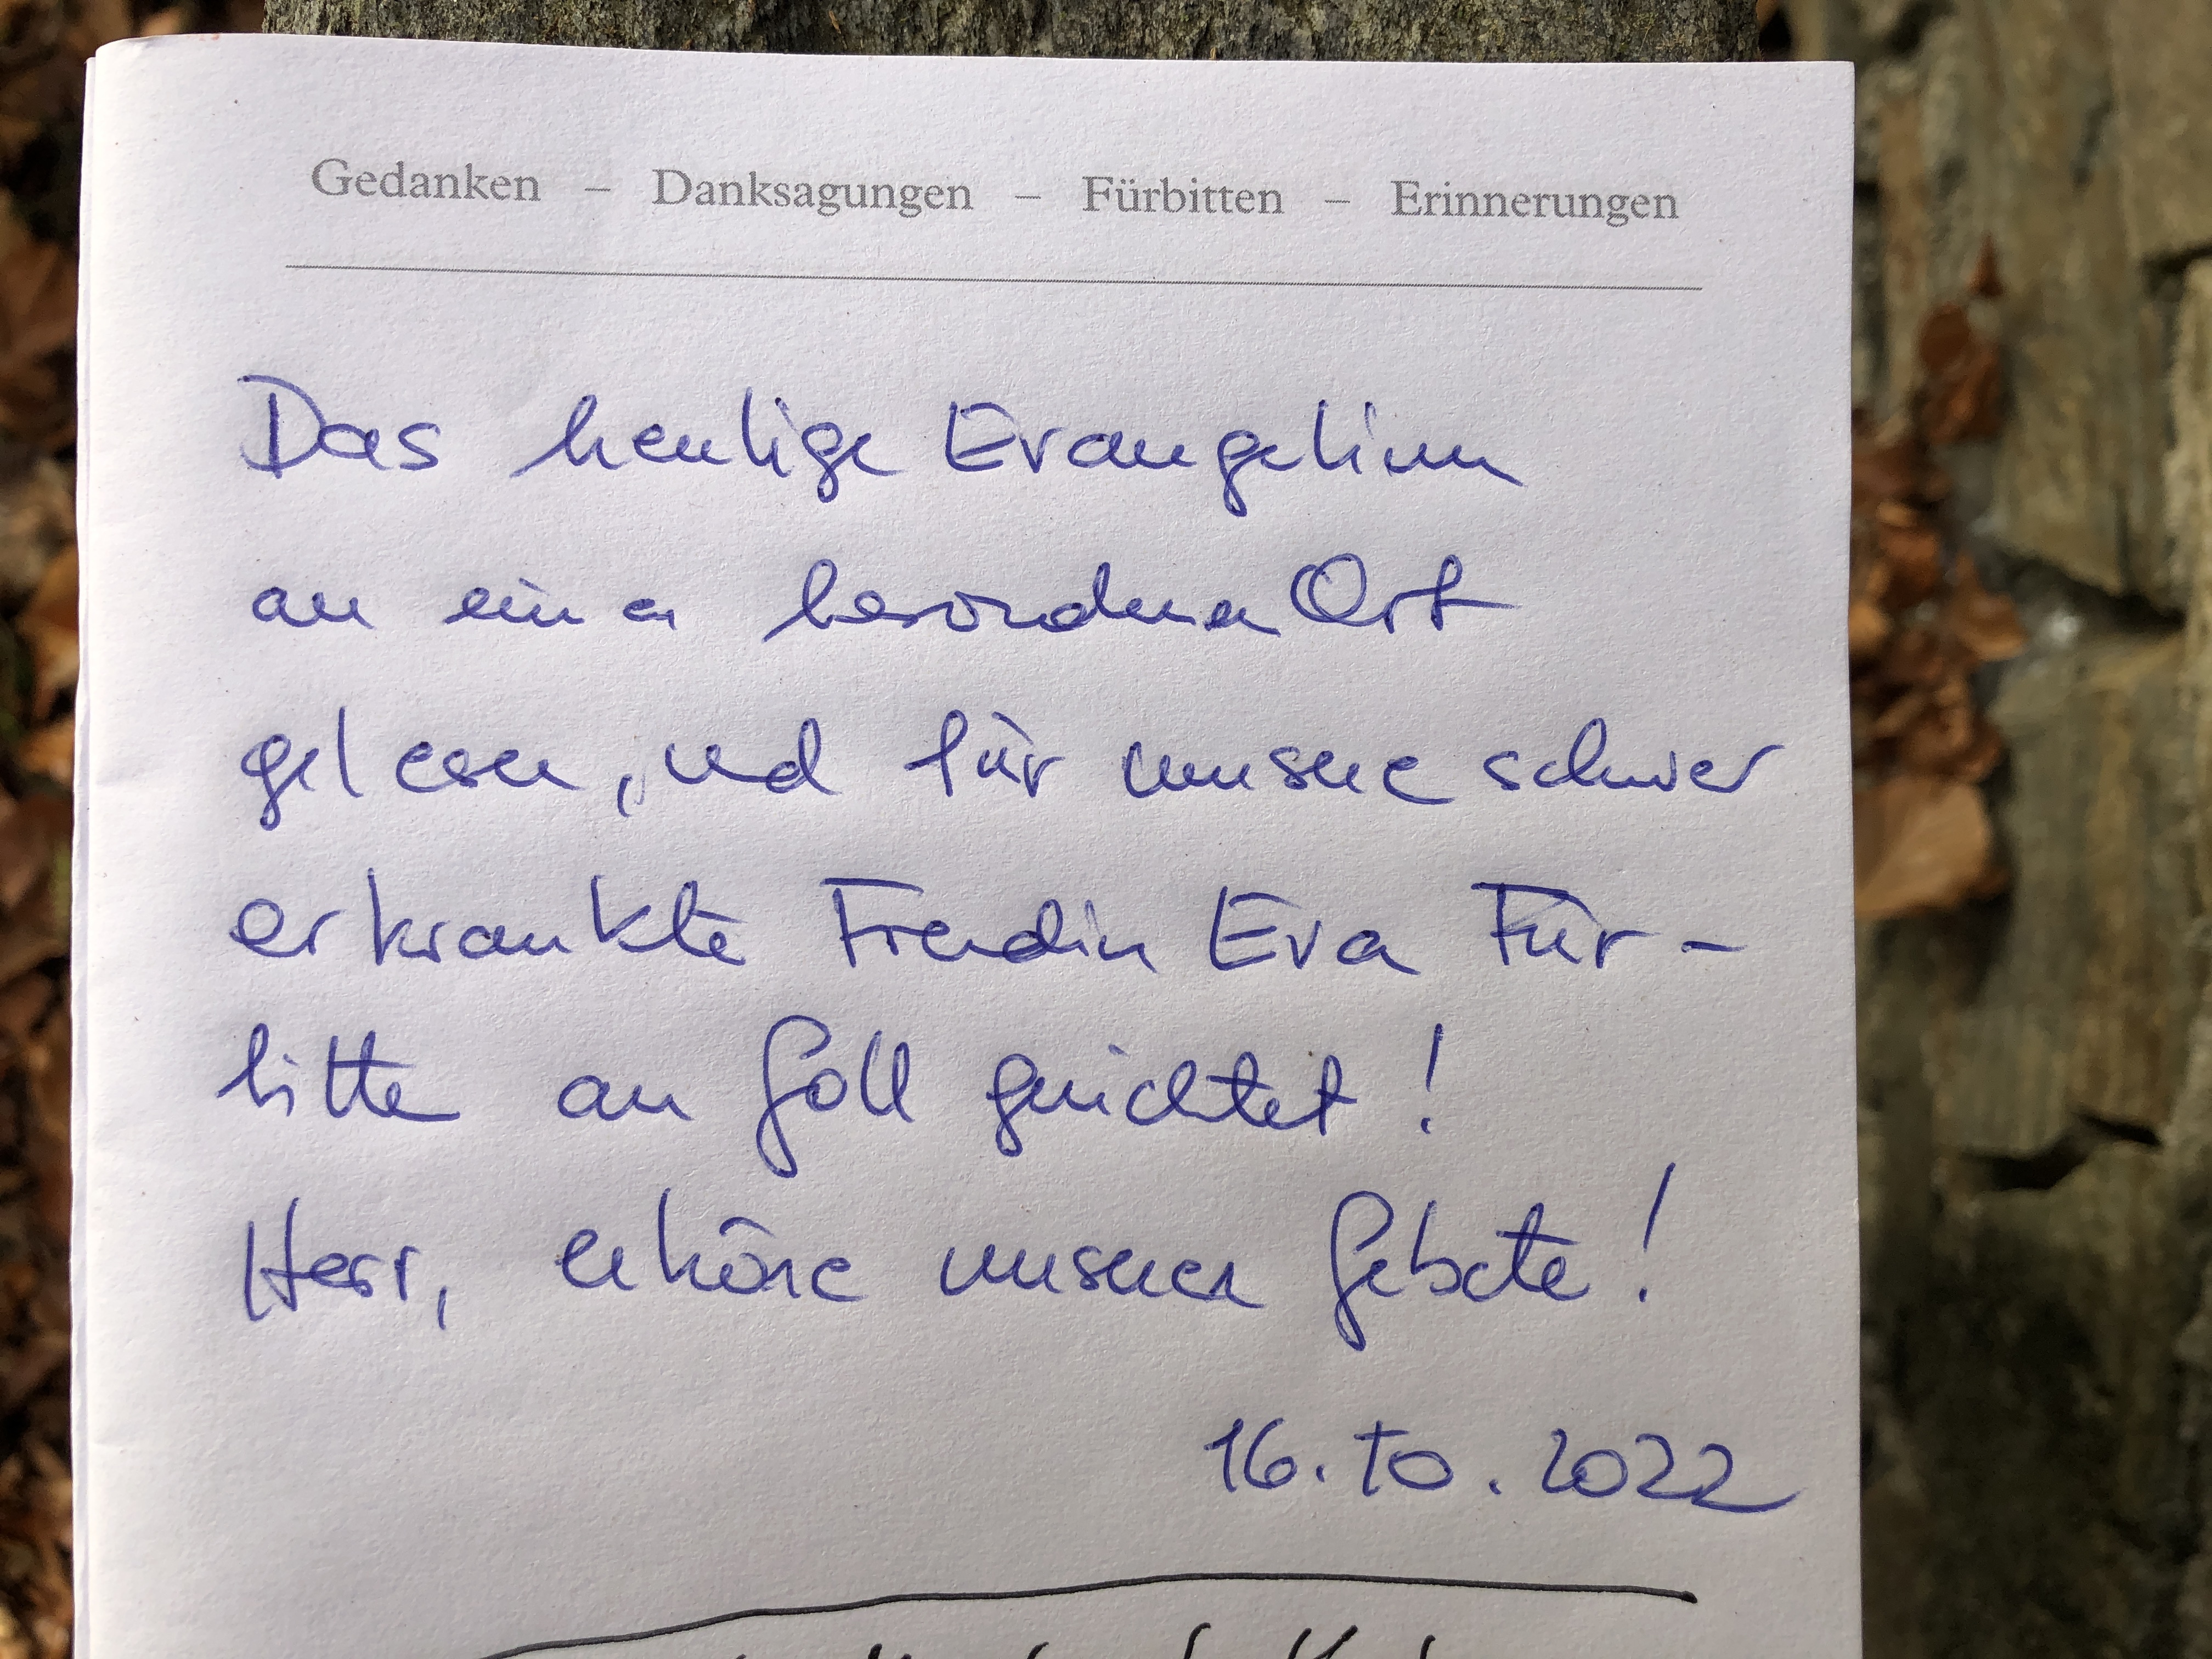 Gedanken – Danksagungen – Fürbitten – Erinnerungen
Das heutige Evangelium
an einen besonderen Ort
gelesen, und für unsere schwer
erkrankte Freundin Eva Für-
bitte an Gott gerichtet!
Herr, erhöre unseren Gebete!
16.10.2022